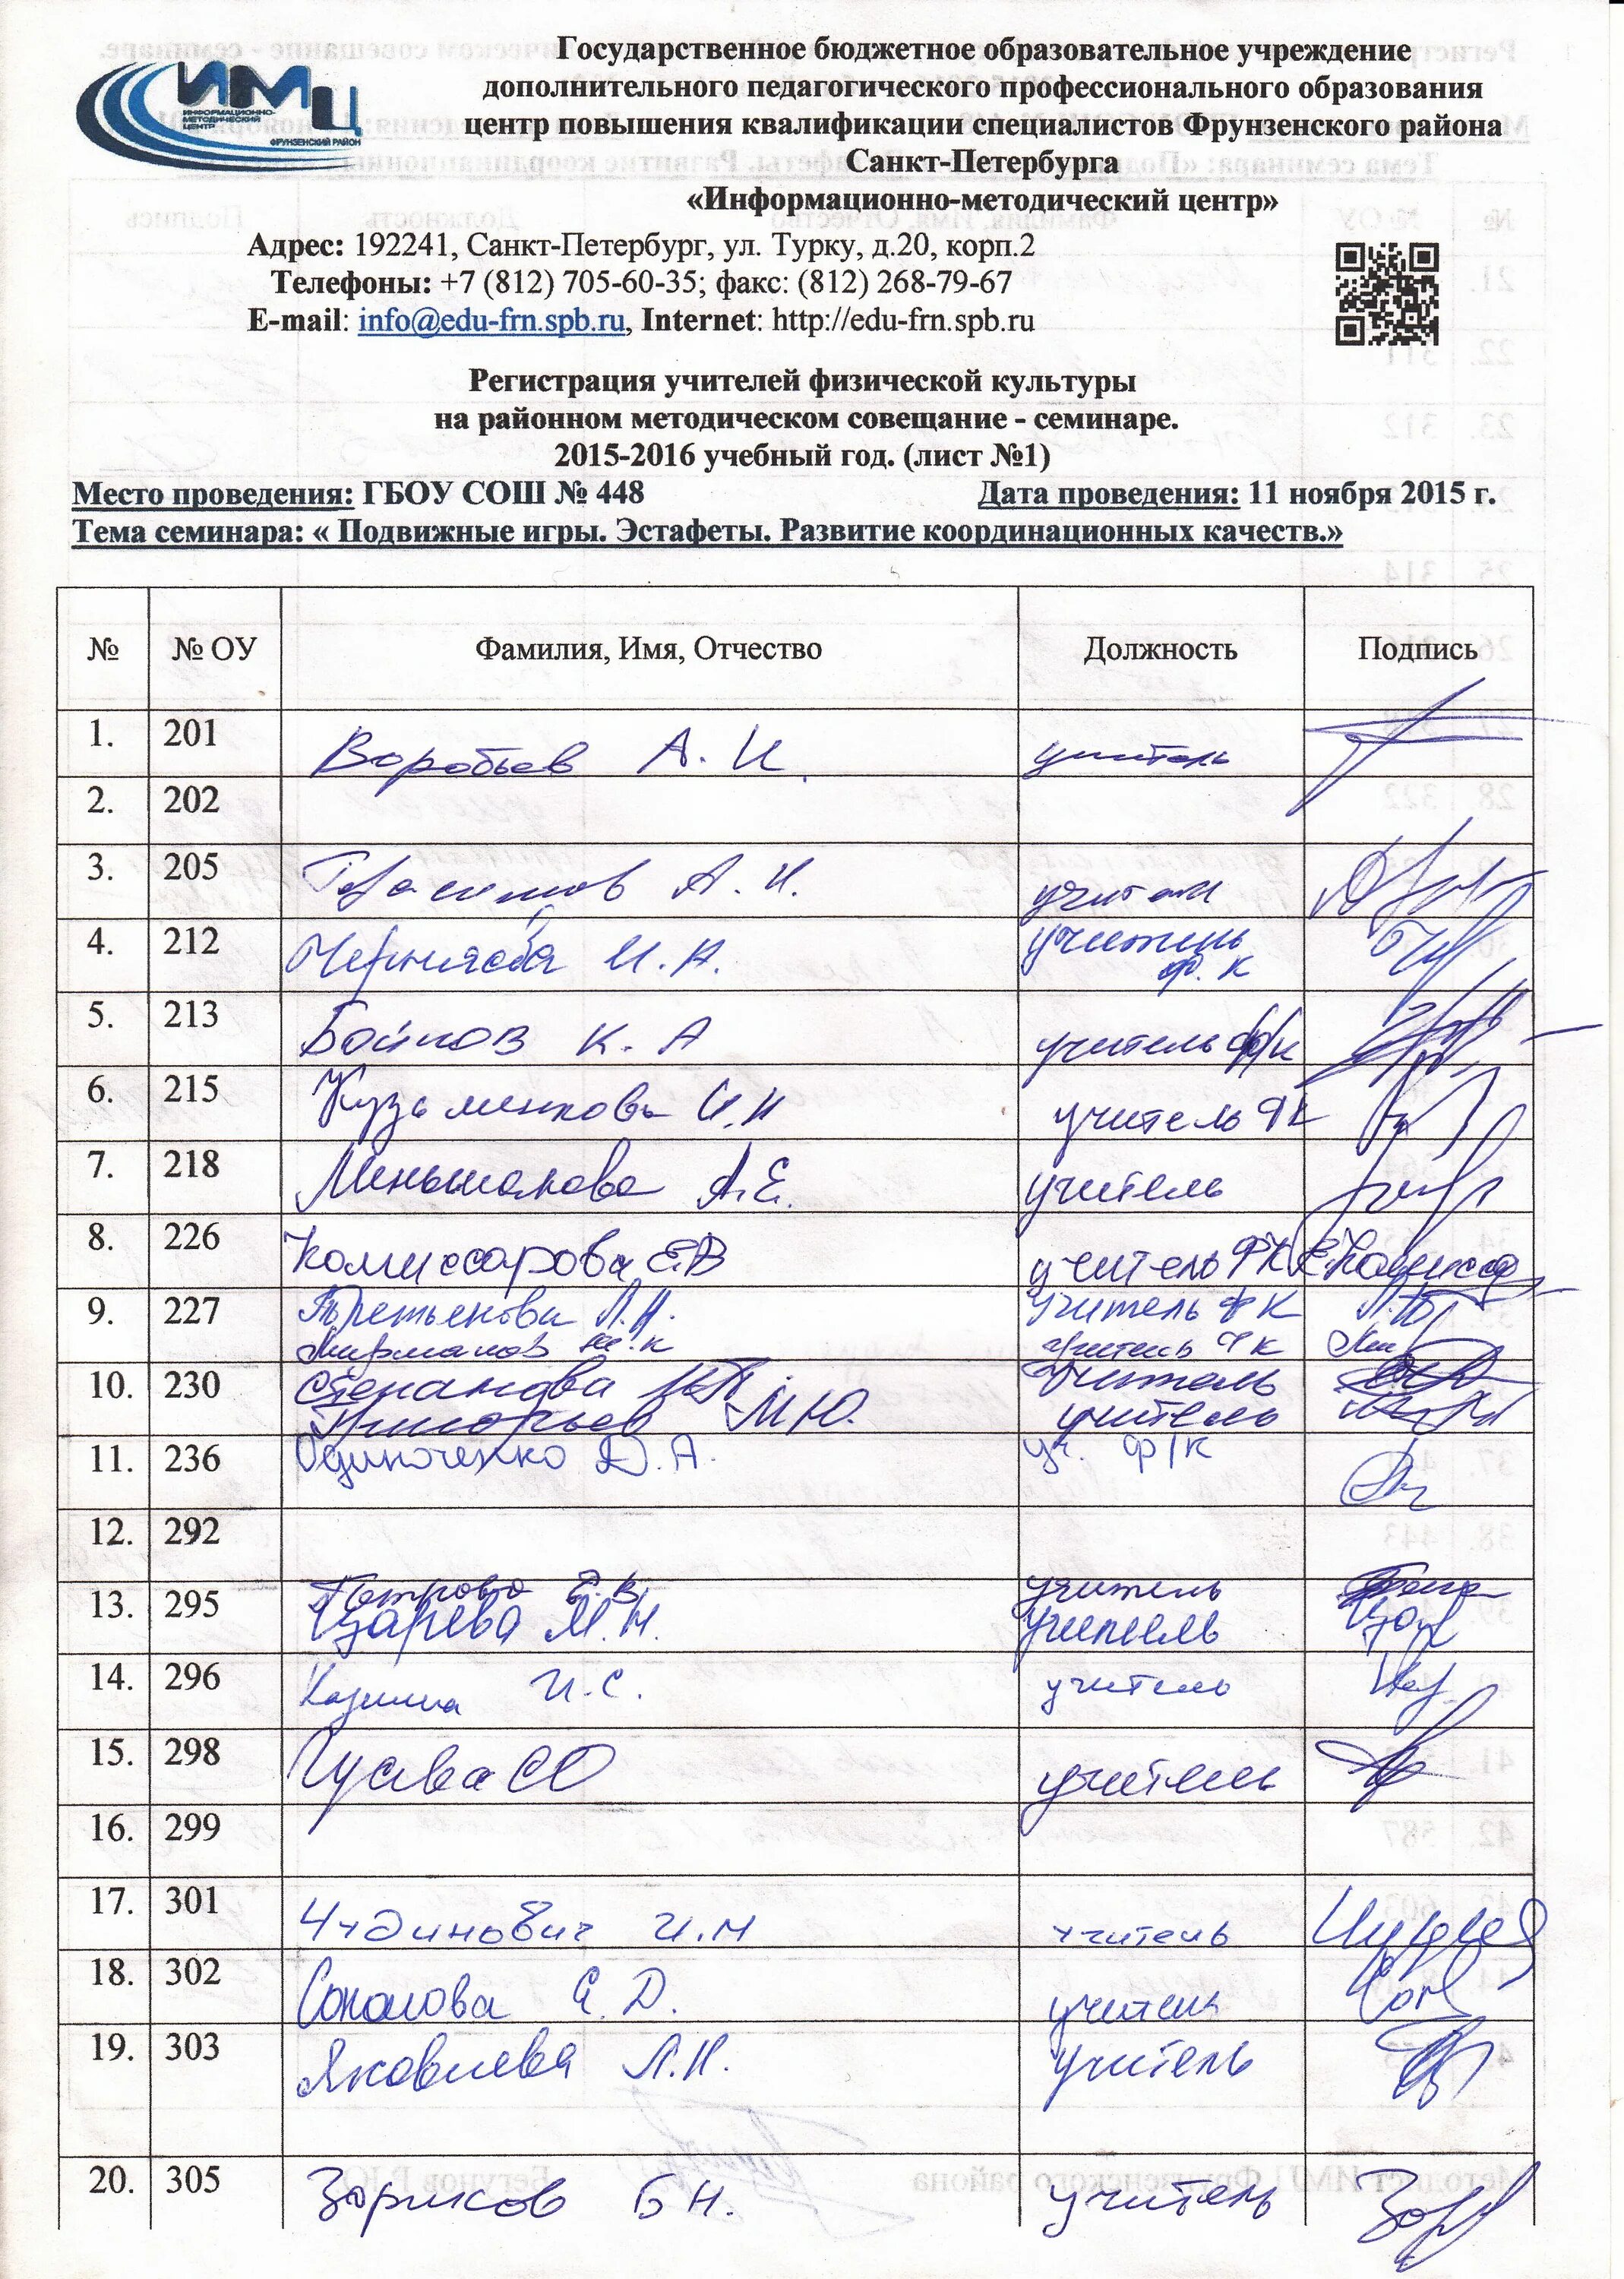 ИМЦ
ИНФОРМАЦИОННО-
МЕТОДИЧЕСКИЙ
ЦЕНТР
ФРУНЗЕНСКИЙ РАЙОН
Государственное бюджетное образовательное учреждение
дополнительного педагогического профессионального образования
центр повышения квалификации специалистов Фрунзенского района
Санкт-Петербурга
«Информационно-методический центр»
Адрес: 192241, Санкт-Петербург, ул. Турку, д.20, корп.2
Телефоны: +7 (812) 705-60-35; факс: (812) 268-79-67
E-mail: info@edu-frn.spb.ru, Internet: http://edu-frn.spb.ru
Регистрация учителей физической культуры
на районном методическом совещание - семинаре.
2015-2016 учебный год. (лист №1)
Место проведения: ГБОУ СОШ № 448 Дата проведения: 11 ноября 2015 г.
Тема семинара: « Подвижные игры. Эстафеты. Развитие координационных качеств.»
№ № ОУ Фамилия, Имя, Отчество Должность Подпись
1. 201 Воробьев А. И. учитель
2. 202
3. 205 Герасимов А. И. учитель
4. 212 Черняева И. А. учитель
ф. к
5. 213 Бойков К. А учитель ф/к
6. 215 Кузьменкова И.И учитель ФК
7. 218 Меньшакова А.Е. учитель
8. 226 Комиссарова Е.В учитель ФК
9. 227 Третьякова Л.Н. учитель ФК
учитель ФК
10. 230 Степанова учитель
Григорьев М Ю. учитель
11. 236 Одиноченко Д. А. уч. ф/к
12. 292
Петрова Е. В. учитель
13. 295 Царева М. Н. учитель
14. 296 И. С. учитель
15. 298 СО учитель
16. 299
17. 301 Чудинович И. М учитель
18. 302 Соколова Е. Д. учитель
19. 303 Яковлева Л. Н. учитель
20. 305 Зориков Б Н. учитель